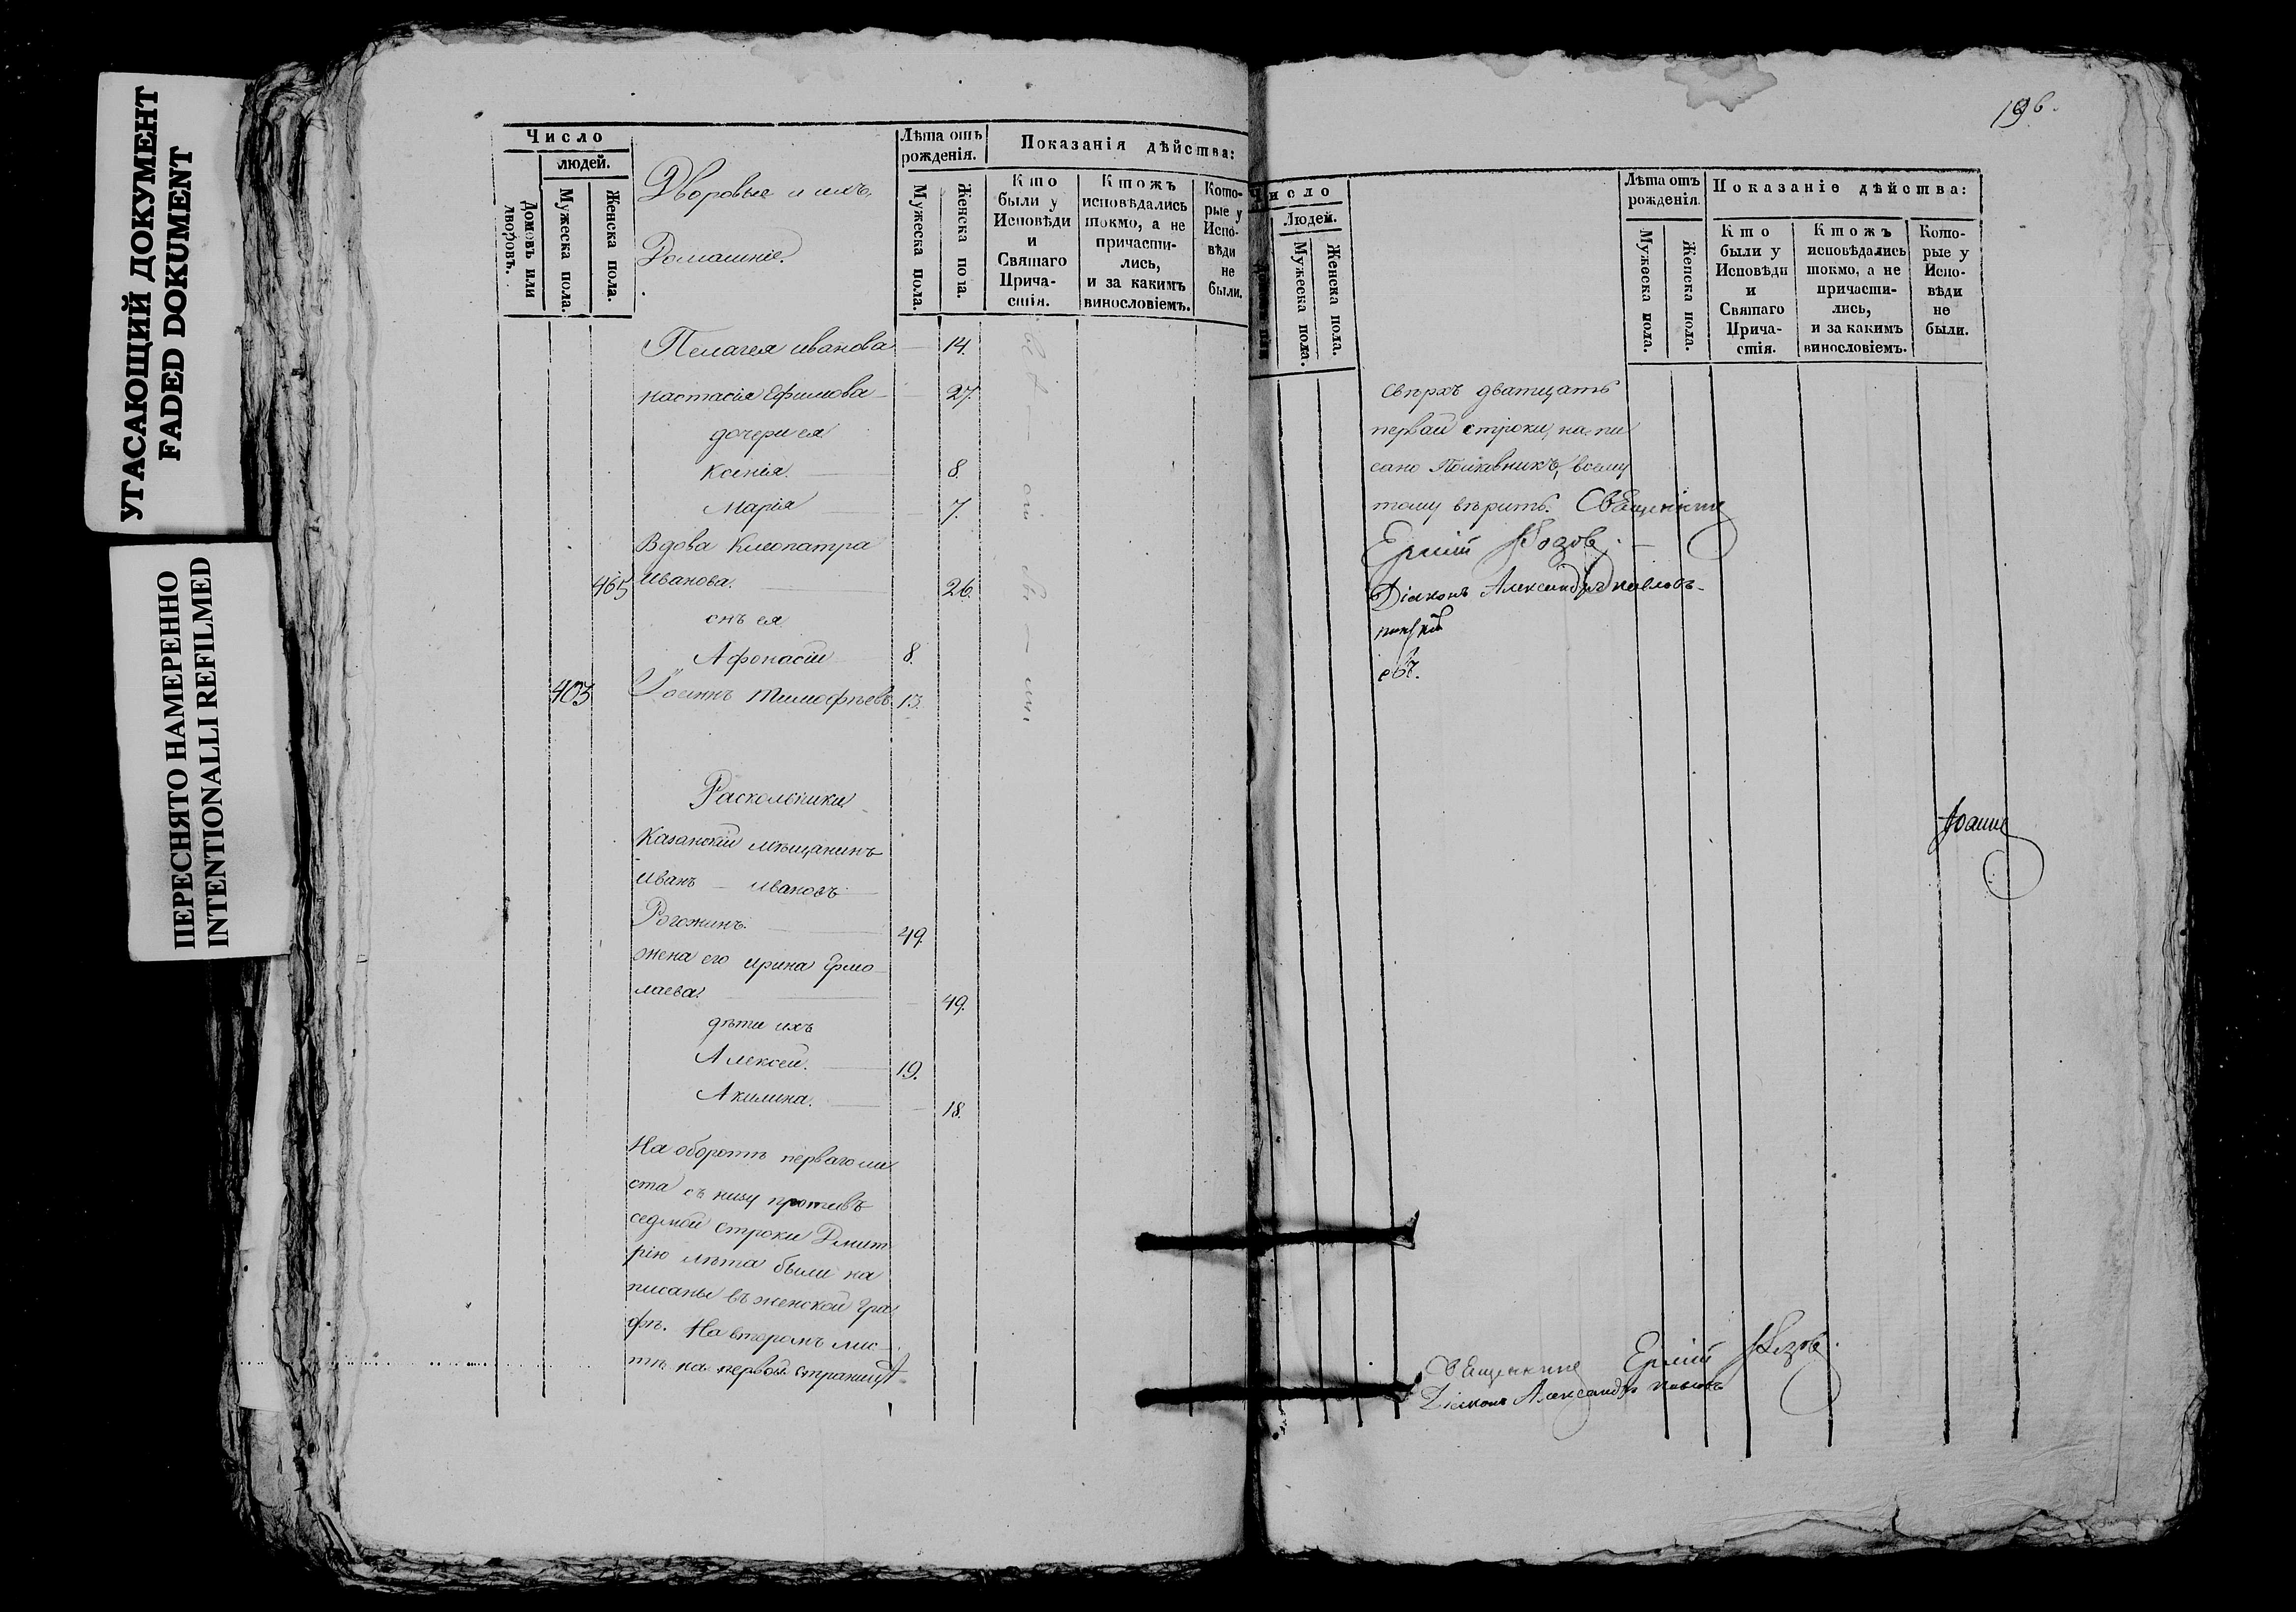 УГАСАЮЩИЙ ДОКУМЕНТ
FADED DOKUMENT
ПЕРЕСНЯТО НАМЕРЕННО
INTENTIONALLI REFILMED
Число
людей.
Домовъ или дворовъ.
Мужеска пола.
Женска пола.
Дворовые и ихъ
Домашніе.
Лѣта отъ рожденія.
Мужеска пола.
Женска пола.
Показанія дѣйства:
Кто были у Исповѣди и Святаго Прича-стія.
Ктожъ исповѣдались токмо, а не причасти-лись, и за какимъ винословіемъ.
Кото-рые у Испо-вѣди не были.
Пелагея иванова 14.
настасія Ефимова 27.
дочери ея
Ксенія. 8.
Марія 7.
Вдова Клеопатра
465 Иванова. 26.
снъ ея
Афонасій 8.
403 Іоаннъ Тимофѣевъ 13.
Раскольники
Казанскій мѣщанинъ
Иванъ ивановъ
Рогожинъ. 49.
жена его ирина Ермо
лаева. 49.
дѣти ихъ
Алексей. 19.
Акилина. 18.
На оборотѣ перваго ли
ста съ низу противъ
седмой строки Дмит
рію лѣта были на
писаны въ женской гра
фѣ. На второмъ лис
тѣ на первой страницѣ
196.
Число
Людей.
Мужеска пола.
Женска пола.
Лѣта отъ рожденія.
Мужеска пола.
Женска пола.
Показаніе дѣйства:
Кто были у Исповѣди и Святаго Прича-стія.
Ктожъ исповѣдались токмо, а не причасти-лись, и за какимъ винословіемъ.
Кото-рые у Испо-вѣди не были.
сверхъ дватцать
первой строки, напи
сано всему
тому вѣрить. Священникъ
Ермій
Діаконъ Александръ
Іоанн
Священникъ Ермій
Діаконъ Александръ